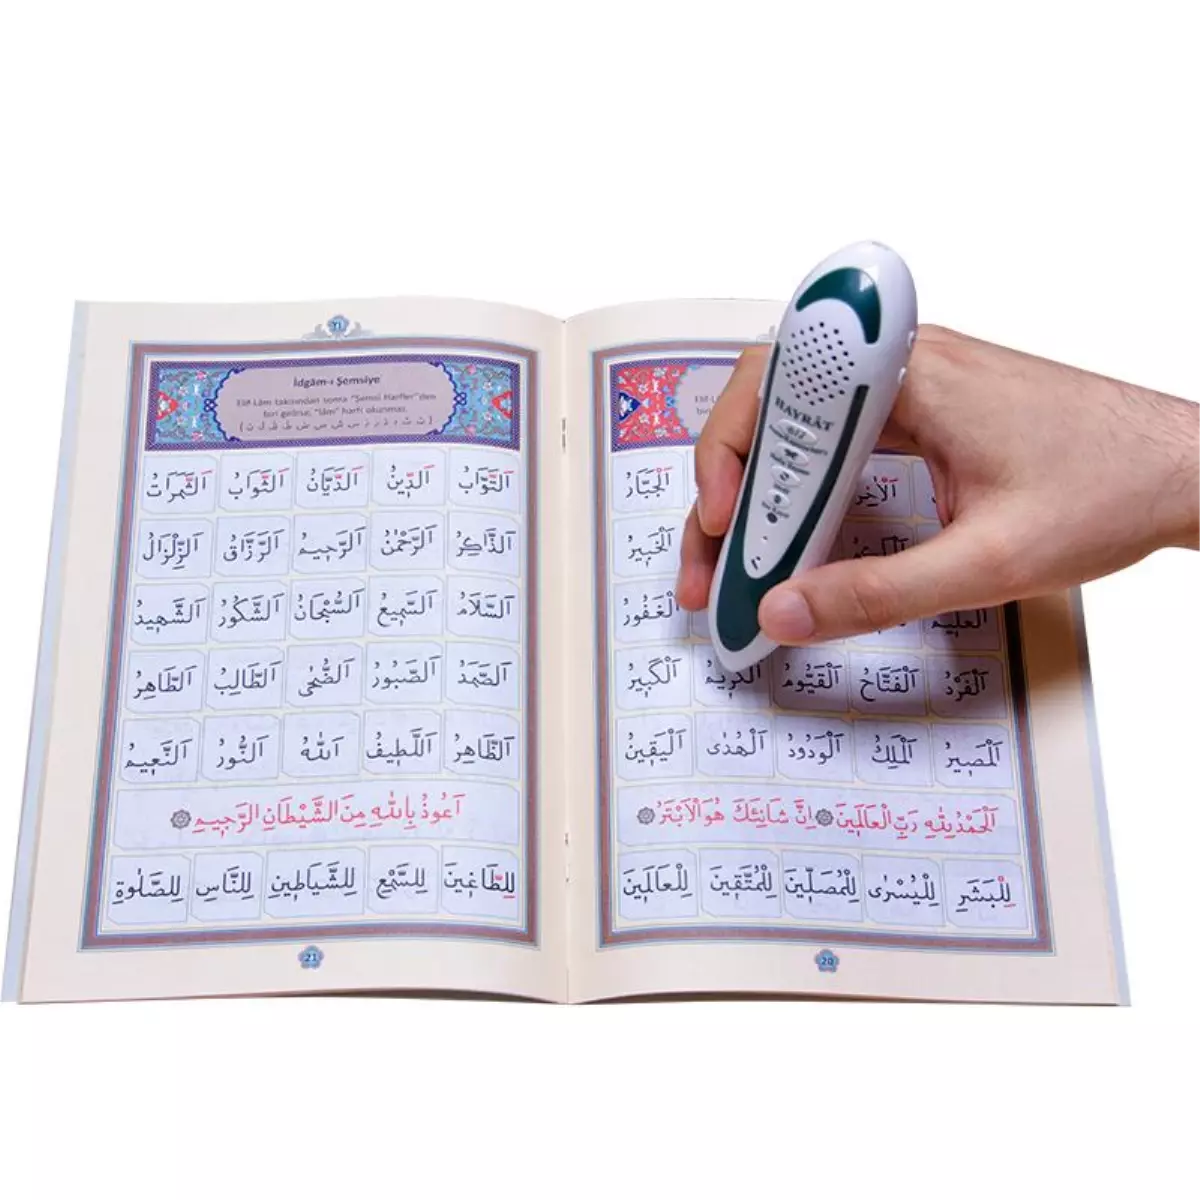 اَلْجَبَّارُ
اَلْخَبِيرُ
اَلْغَفُورُ
اَلْفَرْدُ اَلْفَتَّاحُ اَلْقَيُّومُ اَلْكَرِيمُ اَلْكَبِيرُ
اَلْمَصِيرُ اَلْمَلِكُ اَلْوَدُودُ اَلْهُدٰى اَلْيَقِينُ
اَلْحَمْدُ لِلّٰهِ رَبِّ الْعَالَمِينَ ۞ اِنَّ شَانِئَكَ هُوَ الْاَبْتَرُ ۞
لِلْبَشَرِ لِلْيُسْرٰى لِلْمُصَلِّينَ لِلْمُتَّقِينَ لِلْعَالَمِينَ
20
٢١
İdgâm-ı Şemsiye
Elif-Lâm takısından sonra "Şemsî Harfler"den
biri gelirse, "lâm" harfi okunmaz.
اَلتَّوَّابُ اَلدِّينُ اَلدَّيَّانُ اَلثَّوَابُ اَلثَّمَرَتُ
اَلذَّاكِرُ اَلرَّحْمٰنُ اَلرَّحِيمُ اَلرَّزَّاقُ اَلزِّلْزَالُ
اَلسَّلَامُ اَلسَّمِيعُ اَلسُّبْحَانُ اَلشَّكُورُ اَلشَّهِيدُ
اَلصَّمَدُ اَلصَّبُورُ اَلضُّحٰى اَلطَّالِبُ اَلطَّاهِرُ
اَلظَّاهِرُ اَللَّطِيفُ اَللّٰهُ اَلنُّورُ اَلنَّعِيمُ
اَعُوذُ بِاللّٰهِ مِنَ الشَّيْطَانِ الرَّجِيمِ ۞
لِلطَّاغِينَ لِلسَّمْعِ لِلشَّيَاطِينِ لِلنَّاسِ لِلصَّلٰوةِ
21
HAYRÂT